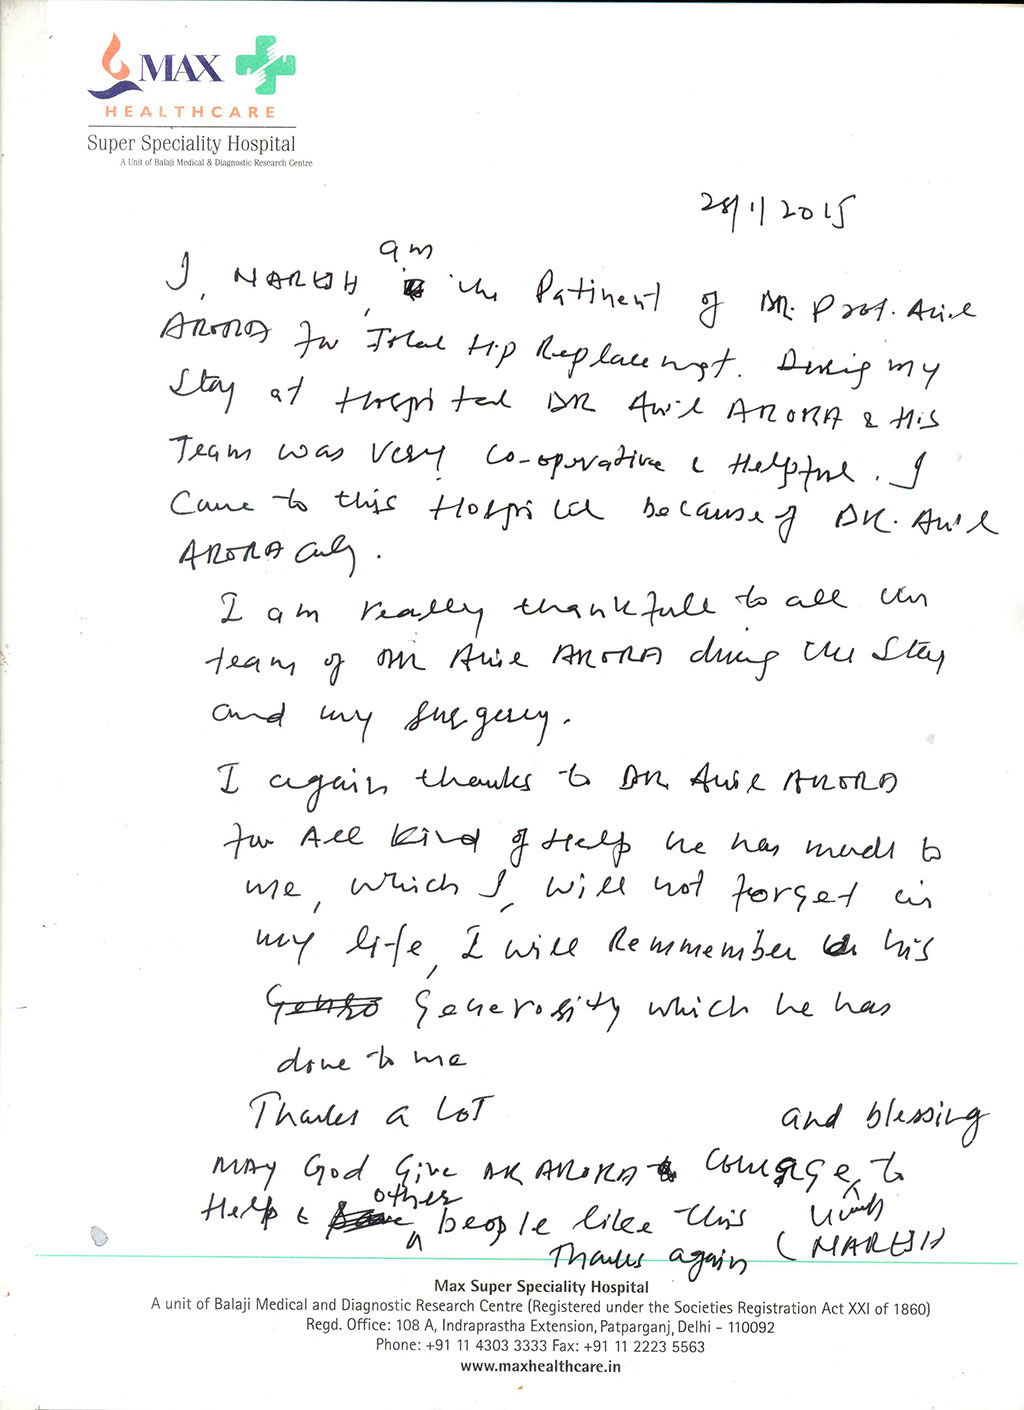 MAX
HEALTHCARE
Super Speciality Hospital
A Unit of Balaji Medical & Diagnostic Research Centre
28/1/2015
am
I, NARESH, the Patinent of DR. Prof. Anil
ARORA for Total Hip Replacemgt. During my
Stay at Hospital DR Anil ARORA & His
Team was very co-operative & Helpful. I
Came to this Hospital because of DR. Anil
ARORA only.
I am really thankfull to all the
team of DR Anil ARORA during the Stay
and my surgery.
I again thanks to DR. Anil ARORA
for All Kind of Help he has made to
me, which I, will not forget in
my life, I will Remmember his
Generosity which he has
done to me
Thanks a LOT
and blessing
MAY God Give DR ARORA courage, to
others
Help & people like this
Thanks again (NARESH
Max Super Speciality Hospital
A unit of Balaji Medical and Diagnostic Research Centre (Registered under the Societies Registration Act XXI of 1860)
Regd. Office: 108 A, Indraprastha Extension, Patparganj, Delhi - 110092
Phone: +91 11 4303 3333 Fax: +91 11 2223 5563
www.maxhealthcare.in